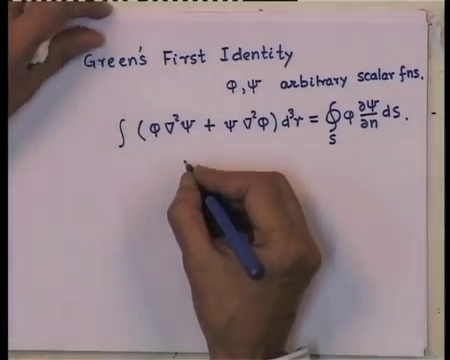 Green's First Identity
φ, ψ arbitrary scalar fns.
∫ (φ∇²ψ + ψ∇²φ) d³r = ∮_S φ ∂ψ/∂n dS.